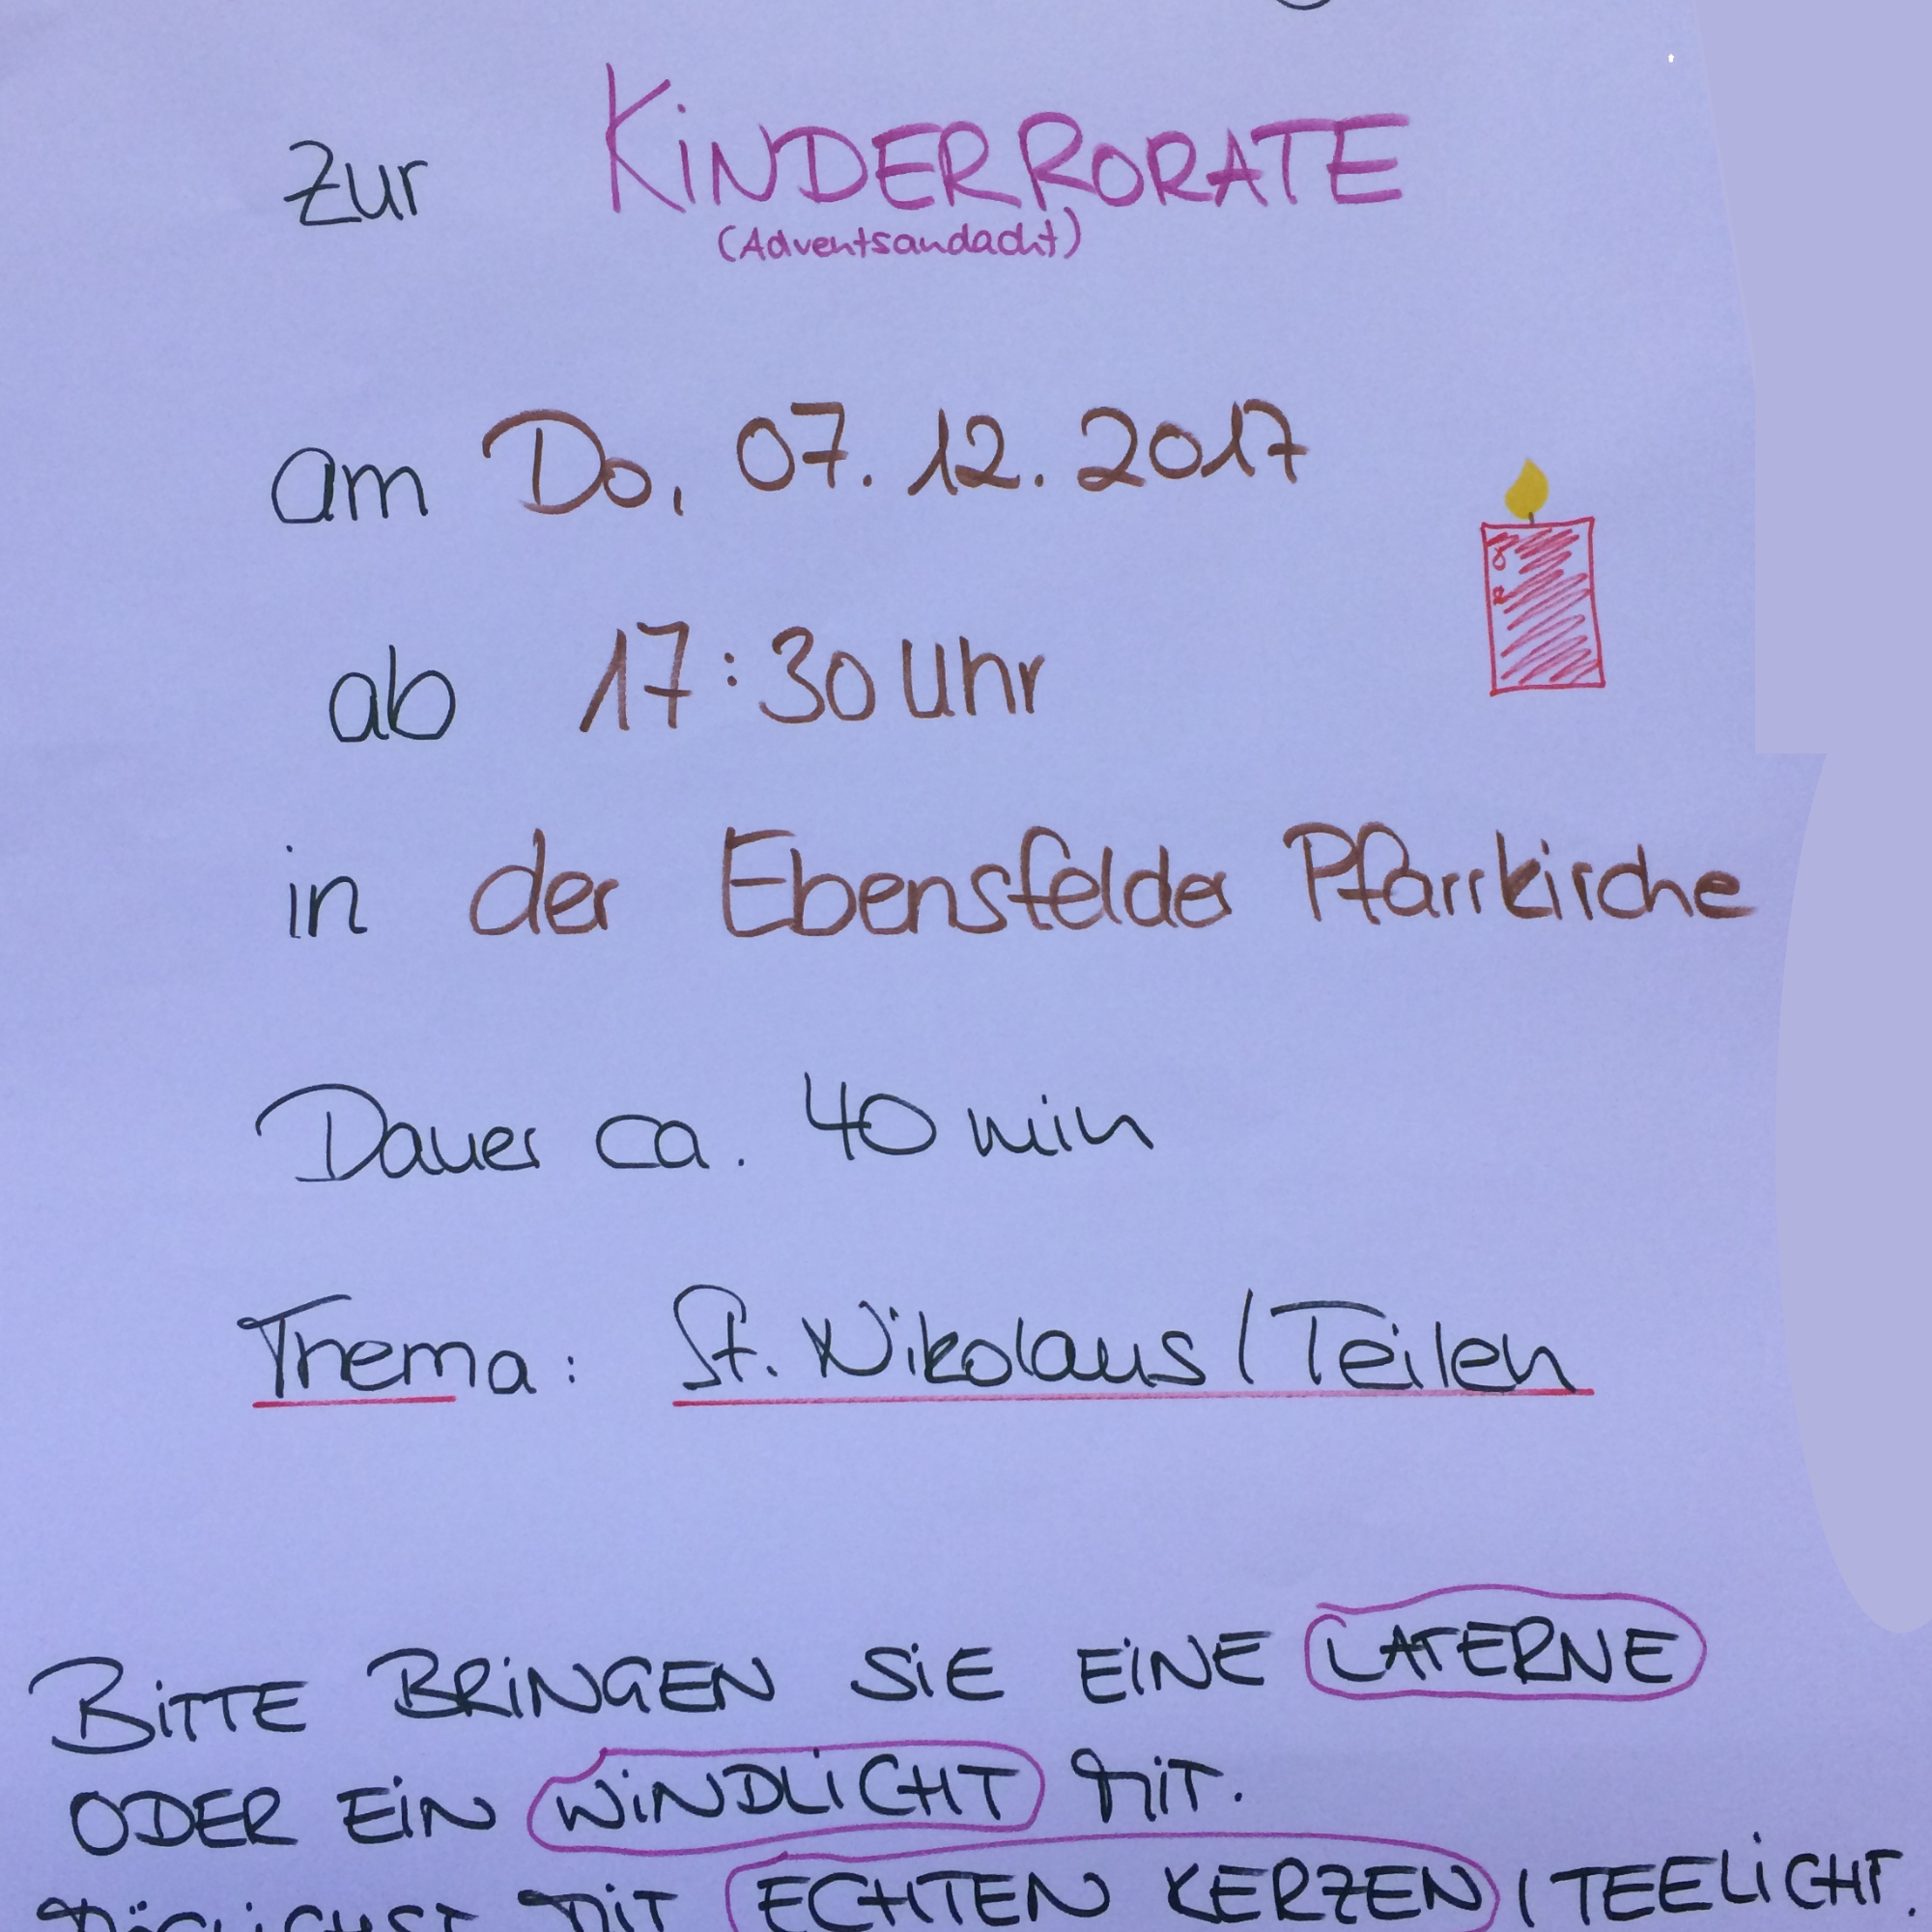 zur KiNDERRORATE
(Adventsandacht)
am Do, 07.12.2017
ab 17:30 Uhr
in der Ebensfelder Pfarrkirche
Dauer ca. 40 min
Thema: St. Nikolaus / Teilen
BiTTE BRiNGEN SiE EiNE LATERNE
ODER EiN WiNDLiCHT MiT.
MÖGLiCHST MiT ECHTEN KERZEN / TEELiCHT.